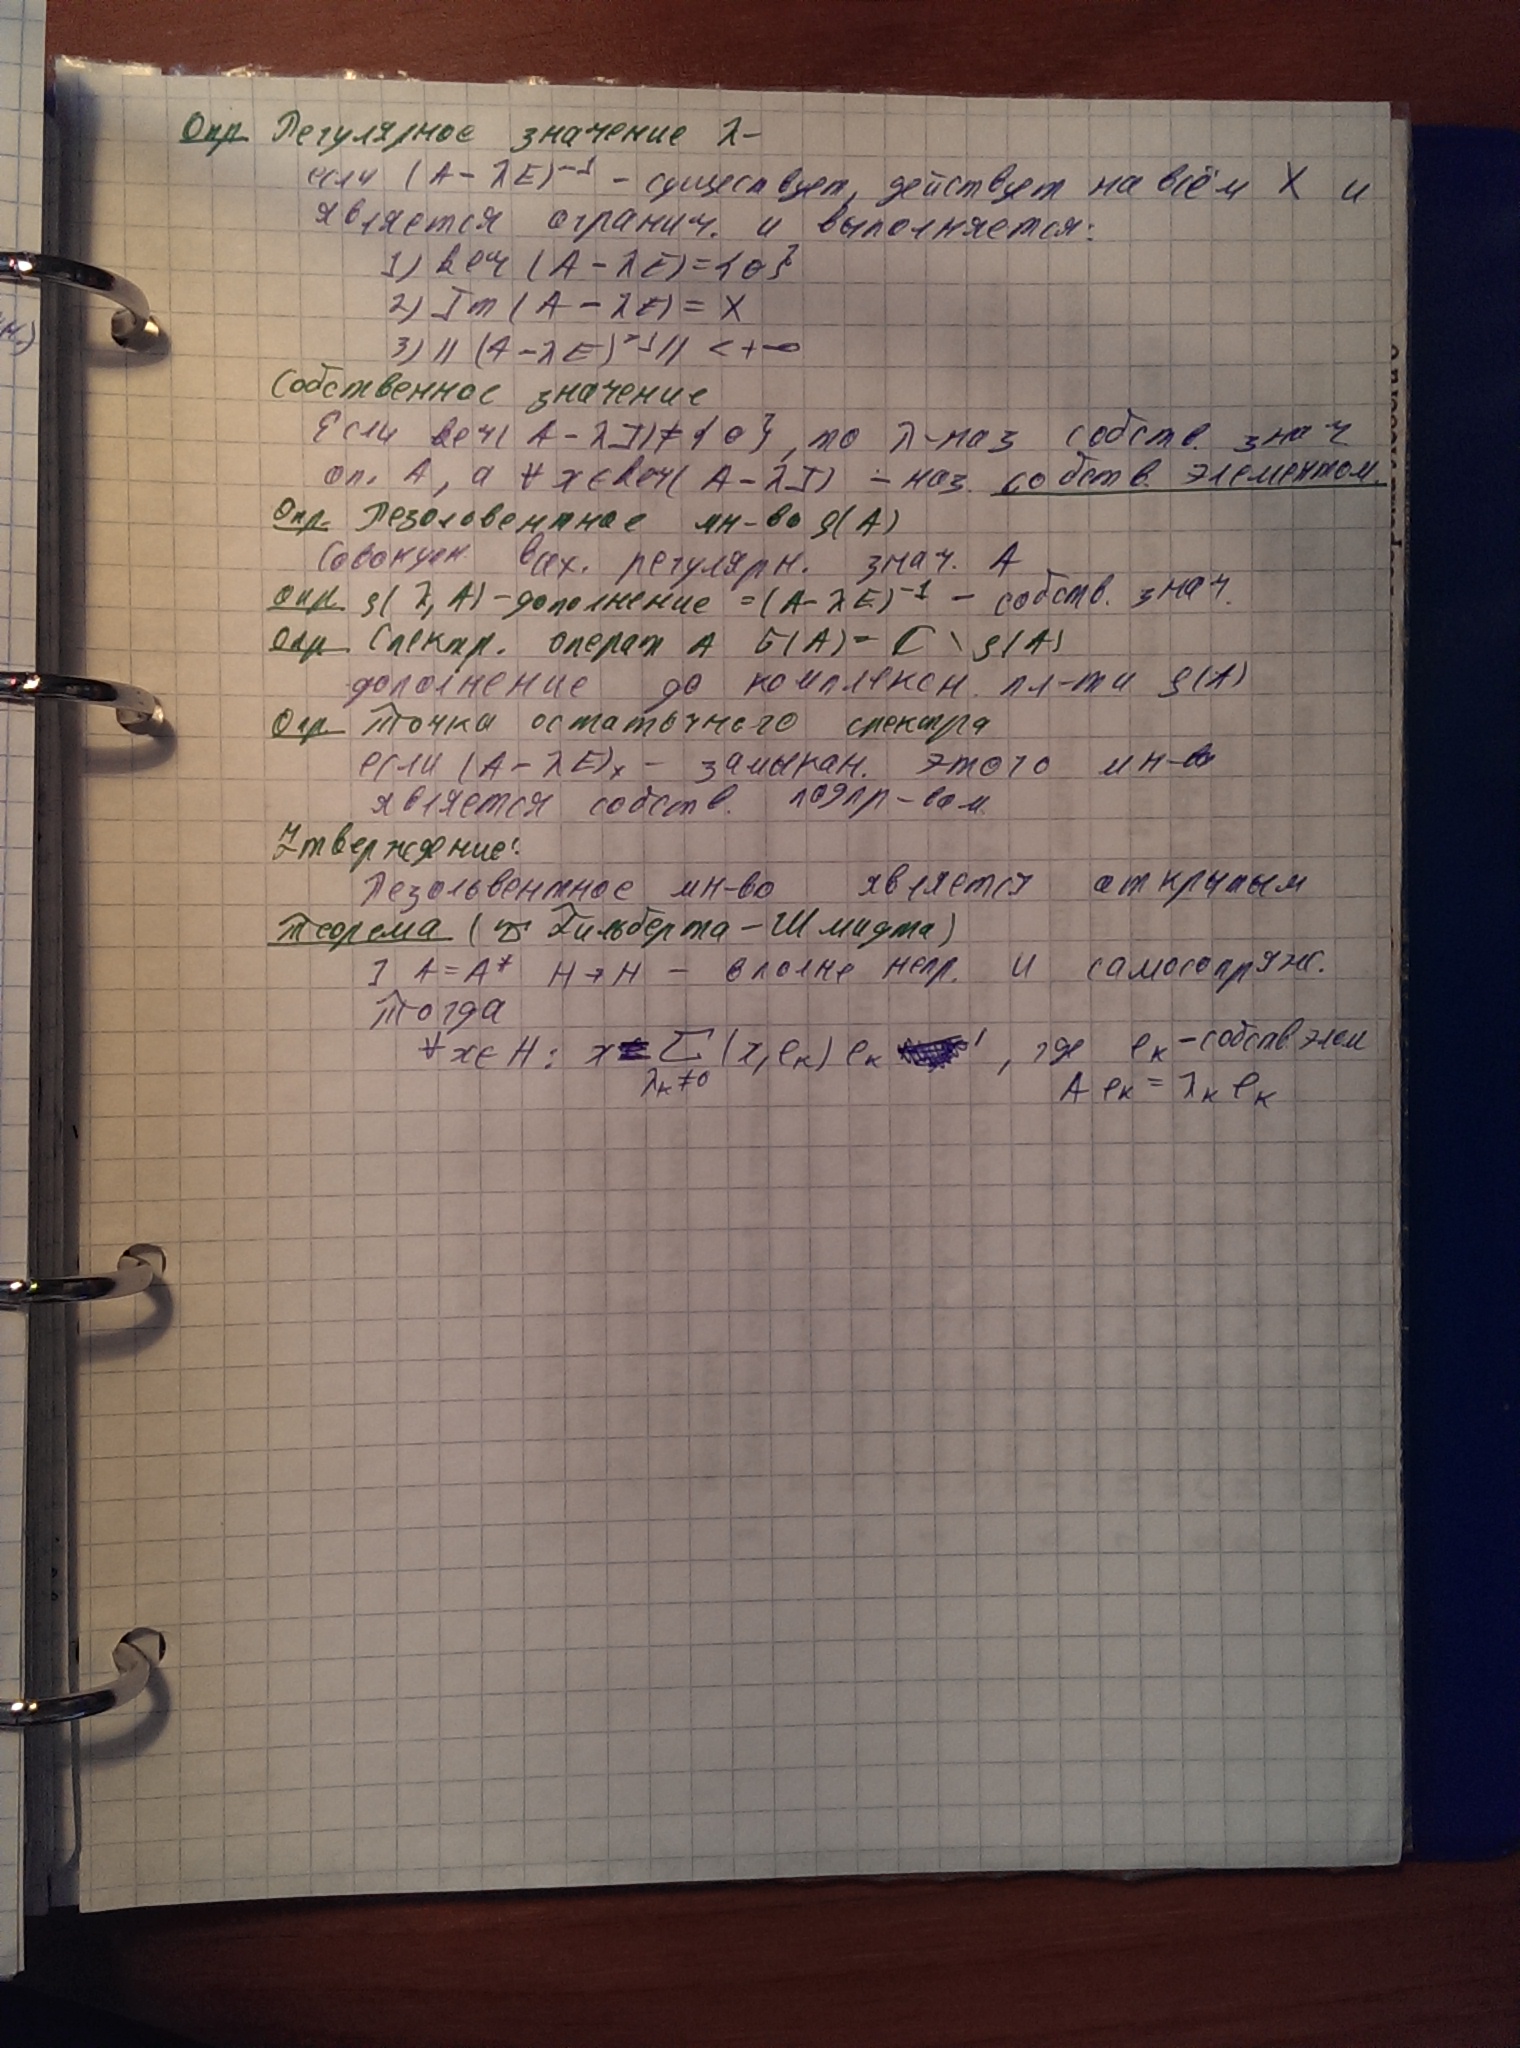 Опр Регулярное значение λ-
если (A - λE)⁻¹ - существует, действует на всём X и
является огранич. и выполняется:
1) ker (A - λE) = {0}
2) Im (A - λE) = X
3) || (A - λE)⁻¹ || < +∞
Собственное значение
Если ker(A - λI) ≠ {0}, то λ-наз собств. знач
оп. A, а ∀ x ∈ ker(A - λI) - наз. собств. элементом.
Опр. Резольвентное мн-во ρ(A)
Совокупн. всех. регулярн. знач. A
Опр ρ(λ, A) - дополнение = (A - λE)⁻¹ - собств. знач.
Опр Спектр. операт A σ(A) = C \ ρ(A)
дополнение до комплексн. пл-ти ρ(A)
Опр Точка остаточного спектра
если (A - λE)ₓ - замыкан. этого мн-ва
является собств. подпр-вом.
Утверждение:
Резольвентное мн-во является открытым
Теорема ( Гильберта - Шмидта)
] A = A* H → H - вполне непр. и самосопряж.
Тогда
∀ x ∈ H: x = Σ (x, eₖ) eₖ , где eₖ - собств элем
λₖ ≠ 0 A eₖ = λₖ eₖ